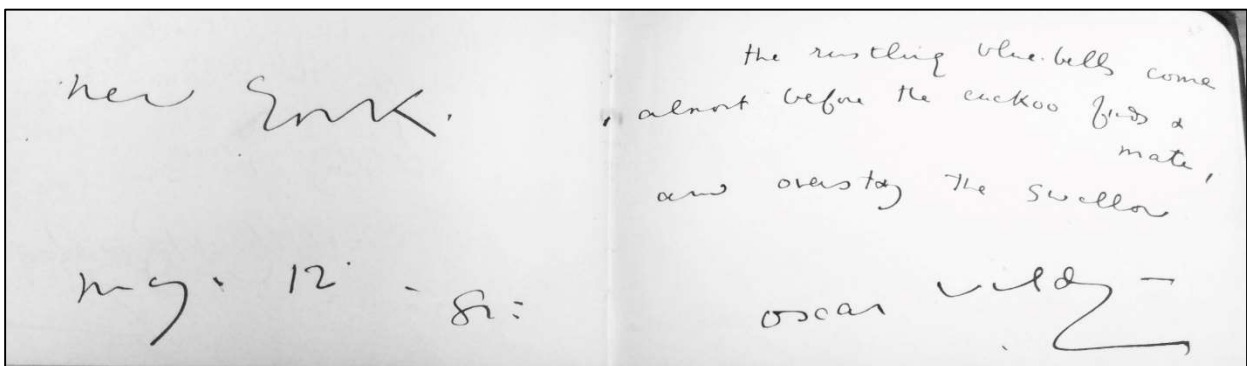 new York.
may. 12 - 82:
the rustling blue-bells come
almost before the cuckoo finds a
mate,
and overstay the swallow
oscar wilde